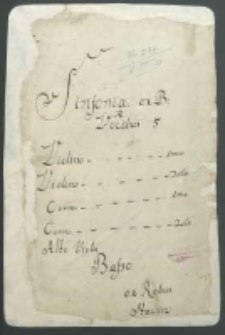 Sinfonia ex B.
Vocibus 5
Violino - - - - - - Imo
Violino - - - - - - 2do
Corno - - - - - - Imo
Corno - - - - - - 2do
Alto Viola
Basso
ex Rebus